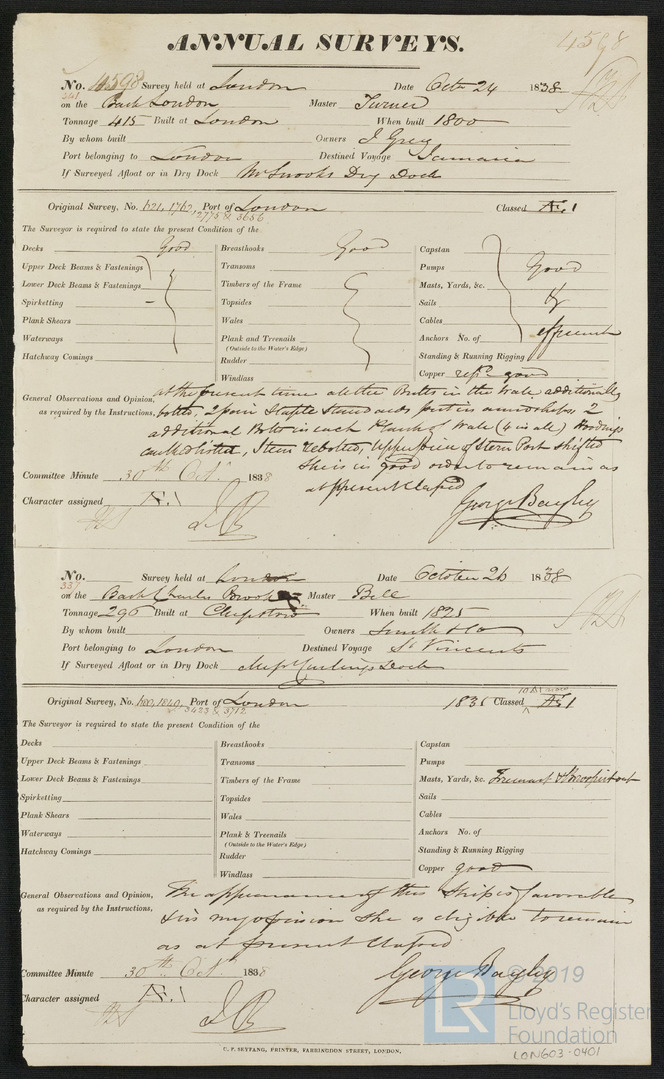 ANNUAL SURVEYS.
4598
No. 4598 Survey held at London Date Octr 24 1838
on the Bark London Master Turner
Tonnage 415 Built at London When built 1800
By whom built Owners J Grey
Port belonging to London Destined Voyage Jamaica
If Surveyed Afloat or in Dry Dock Mr Snooks Dry Dock
Original Survey, No. 621, 1762, Port of London Classed Æ 1
2775 & 3656
The Surveyor is required to state the present Condition of the
Decks Good
Upper Deck Beams & Fastenings
Lower Deck Beams & Fastenings
Spirketting
Plank Shears
Waterways
Hatchway Comings
Breasthooks Good
Transoms
Timbers of the Frame
Topsides
Wales
Plank and Treenails
(Outside to the Water's Edge)
Rudder
Windlass
Capstan
Pumps Good
Masts, Yards, &c. &
Sails
Cables
Anchors No. of efficient
Standing & Running Rigging
Copper repd good
General Observations and Opinion, at the present time all the Butts in the Wale additionally
as required by the Instructions, bolted, 2 pair Staple Standards put in amidships 2
additional Bolts in each Plank of Wale (4 in all) Hoodings
caulked & listed, Stem rebolted, Upper piece of Stern Post shifted
She is in good order to remain as
at present Classed
Committee Minute 30th Octr 1838
Character assigned Æ 1
George Bayley
No. Survey held at London Date October 26 1838
337
on the Bark Charles Master Bell
Tonnage 296 Built at Chepstow When built 1825
By whom built Owners Smith & Co
Port belonging to London Destined Voyage St Vincents
If Surveyed Afloat or in Dry Dock Messrs Curlings Dock
Original Survey, No. 1840, Port of London 1835 Classed Æ 1
3423 & 3712
The Surveyor is required to state the present Condition of the
Decks
Upper Deck Beams & Fastenings
Lower Deck Beams & Fastenings
Spirketting
Plank Shears
Waterways
Hatchway Comings
Breasthooks
Transoms
Timbers of the Frame
Topsides
Wales
Plank & Treenails
(Outside to the Water's Edge)
Rudder
Windlass
Capstan
Pumps
Masts, Yards, &c.
Sails
Cables
Anchors No. of
Standing & Running Rigging
Copper good
General Observations and Opinion, The appearance of this Ship is favorable
as required by the Instructions, & in my opinion She is eligible to remain
as at present Classed
Committee Minute 30th Octr 1838
Character assigned Æ 1
George Bayley
© 2019
LR
Lloyd's Register
Foundation
C. F. SEYFANG, PRINTER, FARRINGDON STREET, LONDON.
LON603-0401